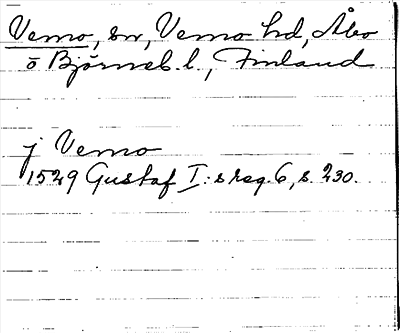 Vemo, sn, Vemo hd, Åbo
o Björneb. l., Finland
j Vemo
1529 Gustaf I:s reg. 6, s. 230.